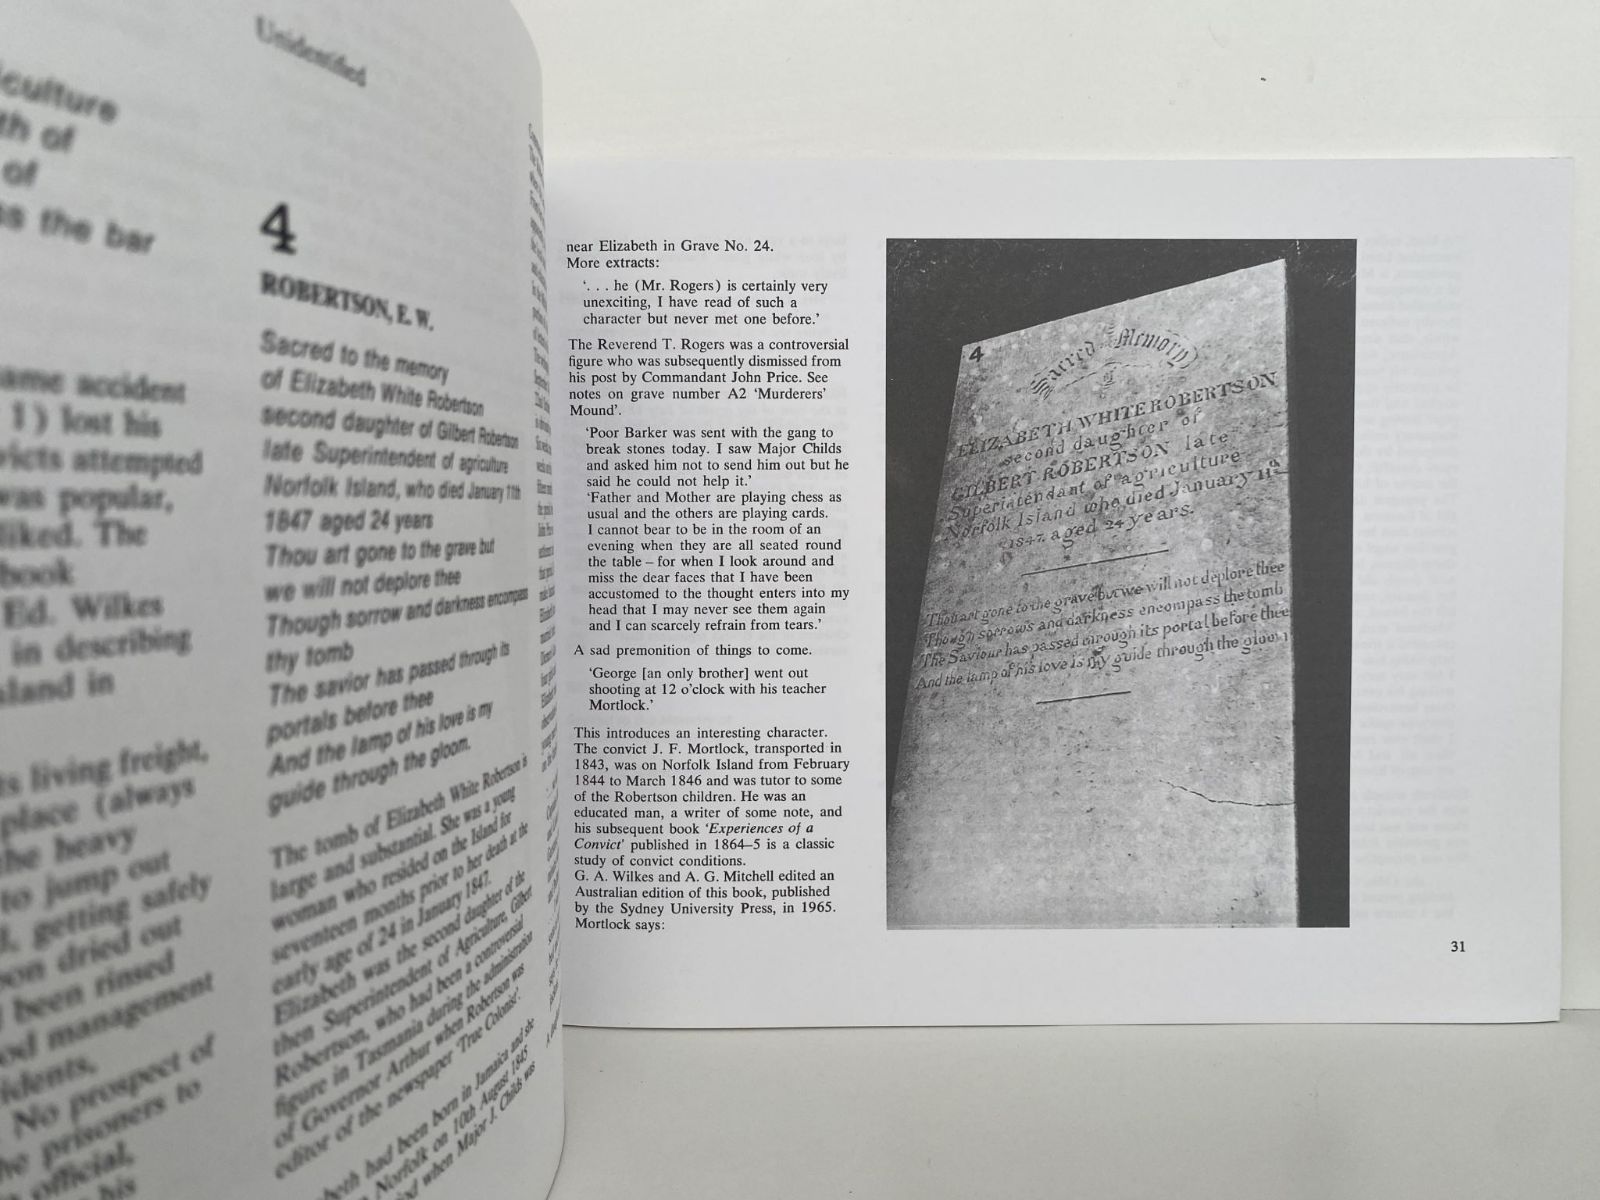 Unidentified
iculture
th of
of
ss the bar
ame accident
1) lost his
victs attempted
was popular,
liked. The
book
Ed. Wilkes
in describing
sland in
ts living freight,
place (always
the heavy
to jump out
getting safely
oon dried out
been rinsed
od management
idents.
No prospect of
he prisoners to
official,
his
4
ROBERTSON, E. W.
Sacred to the memory
of Elizabeth White Robertson
second daughter of Gilbert Robertson
late Superintendent of agriculture
Norfolk Island, who died January 11th
1847 aged 24 years
Thou art gone to the grave but
we will not deplore thee
Though sorrow and darkness encompass
thy tomb
The savior has passed through its
portals before thee
And the lamp of his love is my
guide through the gloom.
The tomb of Elizabeth White Robertson is
large and substantial. She was a young
woman who resided on the Island for
seventeen months prior to her death at the
early age of 24 in January 1847.
Elizabeth was the second daughter of the
then Superintendent of Agriculture, Gilbert
Robertson, who had been a controversial
figure in Tasmania during the administration
of Governor Arthur when Robertson was
editor of the newspaper 'True Colonist'.
beth had been born in Jamaica and she
Norfolk on 10th August 1845
when Major J. Childs was
near Elizabeth in Grave No. 24.
More extracts:
'. . . he (Mr. Rogers) is certainly very
unexciting, I have read of such a
character but never met one before.'
The Reverend T. Rogers was a controversial
figure who was subsequently dismissed from
his post by Commandant John Price. See
notes on grave number A2 'Murderers'
Mound'.
'Poor Barker was sent with the gang to
break stones today. I saw Major Childs
and asked him not to send him out but he
said he could not help it.'
'Father and Mother are playing chess as
usual and the others are playing cards.
I cannot bear to be in the room of an
evening when they are all seated round
the table – for when I look around and
miss the dear faces that I have been
accustomed to the thought enters into my
head that I may never see them again
and I can scarcely refrain from tears.'
A sad premonition of things to come.
'George [an only brother] went out
shooting at 12 o'clock with his teacher
Mortlock.'
This introduces an interesting character.
The convict J. F. Mortlock, transported in
1843, was on Norfolk Island from February
1844 to March 1846 and was tutor to some
of the Robertson children. He was an
educated man, a writer of some note, and
his subsequent book 'Experiences of a
Convict' published in 1864–5 is a classic
study of convict conditions.
G. A. Wilkes and A. G. Mitchell edited an
Australian edition of this book, published
by the Sydney University Press, in 1965.
Mortlock says:
4
Sacred to the Memory
of
ELIZABETH WHITE ROBERTSON
second daughter of
GILBERT ROBERTSON late
Superintendant of agriculture
Norfolk Island who died January 11th
1847. aged 24 years.
Thou art gone to the grave but we will not deplore thee
Though sorrows and darkness encompass the tomb
The Saviour has passed through its portal before thee
And the lamp of his love is thy guide through the gloom
31